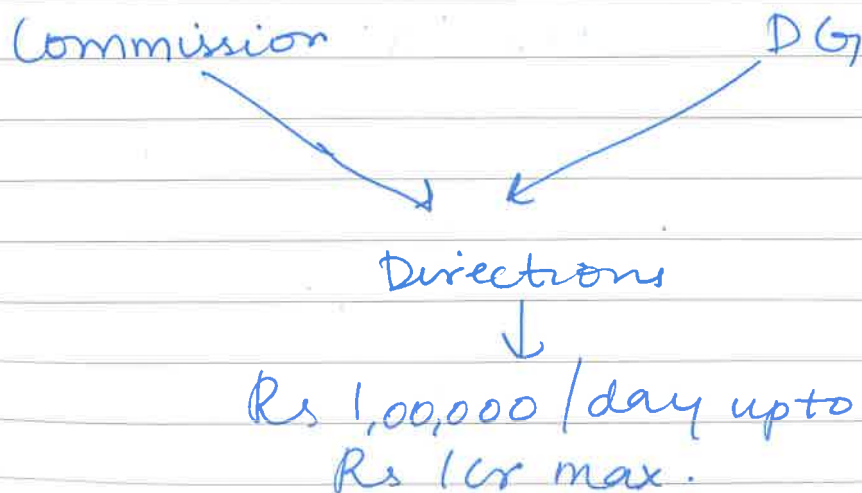 Commission DG
Directions
Rs 1,00,000/day upto
Rs 1cr max.